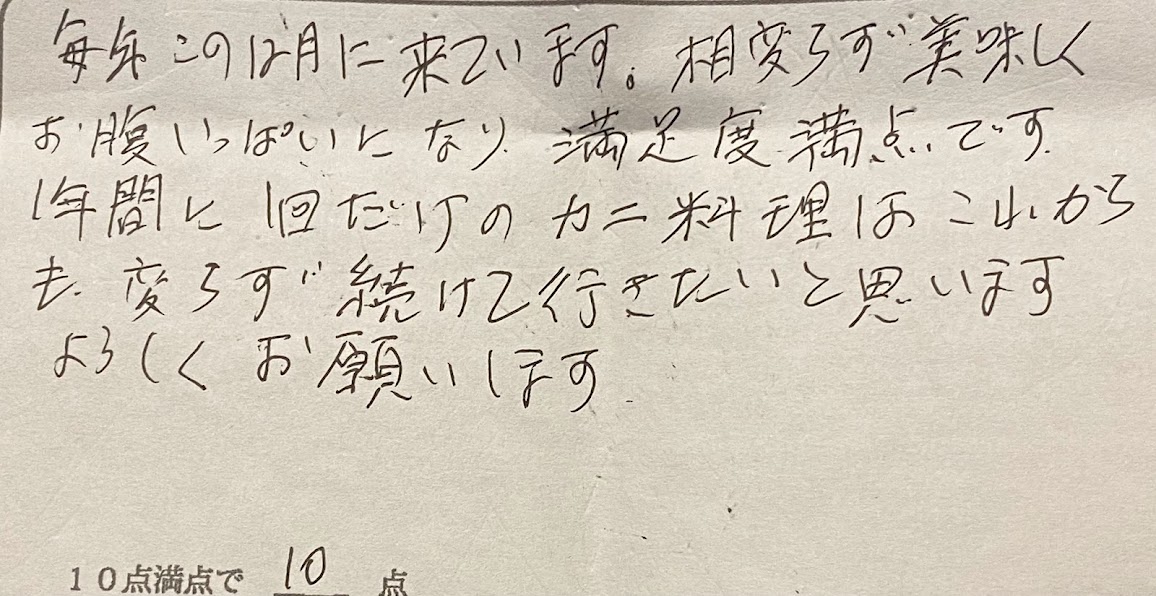 毎年この12月に来ています。相変らず美味しく
お腹いっぱいになり、満足度満点です。
1年間に1回だけのカニ料理はこれから
も、変らず続けて行きたいと思います
よろしくお願いします。
10点満点で 10 点